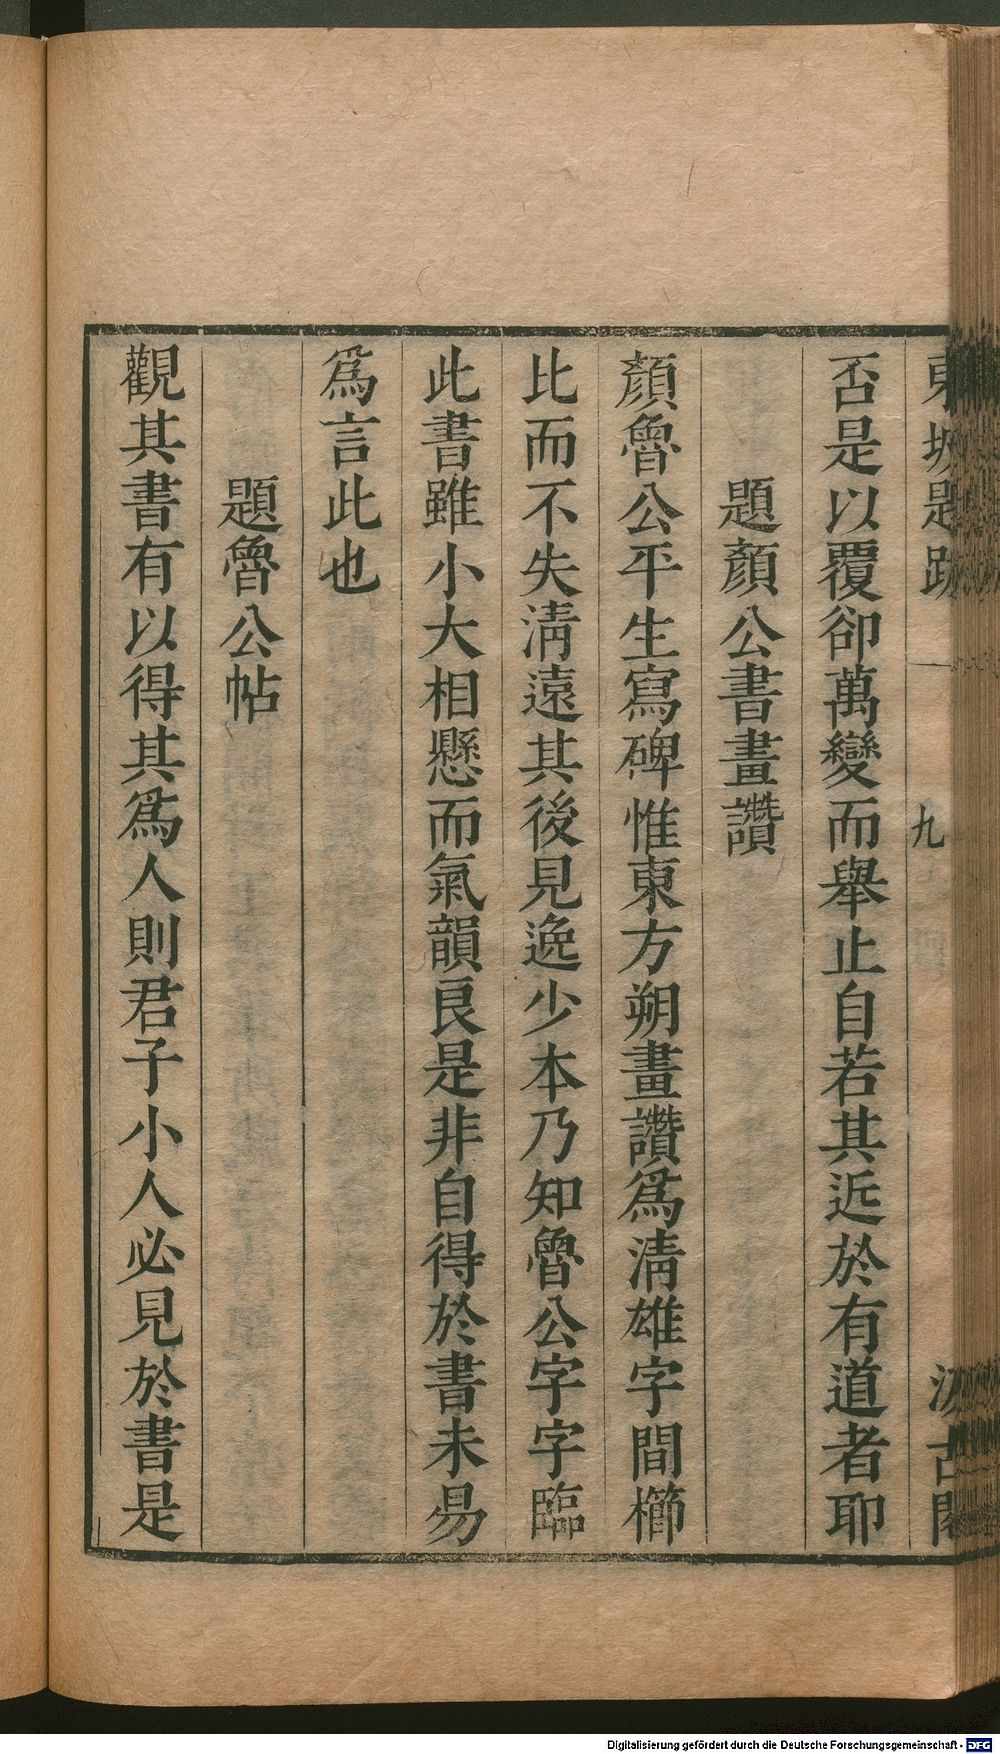 東坡題跋 九 汲古閣
否是以覆卻萬變而舉止自若其近於有道者耶
題顏公書畫讚
顏魯公平生寫碑惟東方朔畫讚爲淸雄字間櫛
比而不失淸遠其後見逸少本乃知魯公字字臨
此書雖小大相懸而氣韻良是非自得於書未易
爲言此也
題魯公帖
觀其書有以得其爲人則君子小人必見於書是
Digitalisierung gefördert durch die Deutsche Forschungsgemeinschaft - DFG